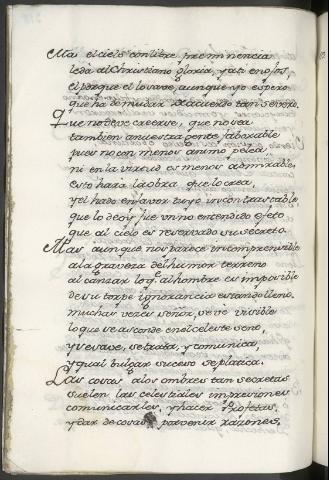 Mas el cielo con libre preminencia
le da al Christiano gloria, y a ti enojos,
el porque el lo save, aunque yo espero
que ha de mudar acuerdo tan severo.
Que no deve creerse, que no sea
tambien a nuestra gente faborable
pues no con menos animo pelea
ni en la virtud es menos admirable
esto hará la obra que lo crea,
y el hado en favor tuyo incontrastable
que lo deçis fue vn no entendido efeto
que al cielo es reservado su secreto.
Mas aunque nos parece incomprensible
a la graveza del humor terreno
alcanzar lo q. al hombre es imposible
de su torpe ignorancia estando lleno.
muchas vezes señor, se ve visible
lo que se asconde en el celeste seno,
y se save, se trata, y comunica,
y qual bulgar suceso se platica.
Las cosas a los ombres tan secretas
suelen las celestiales impresiones
comunicarles, y hacer Profetas,
y dar de cosas por venir razones,